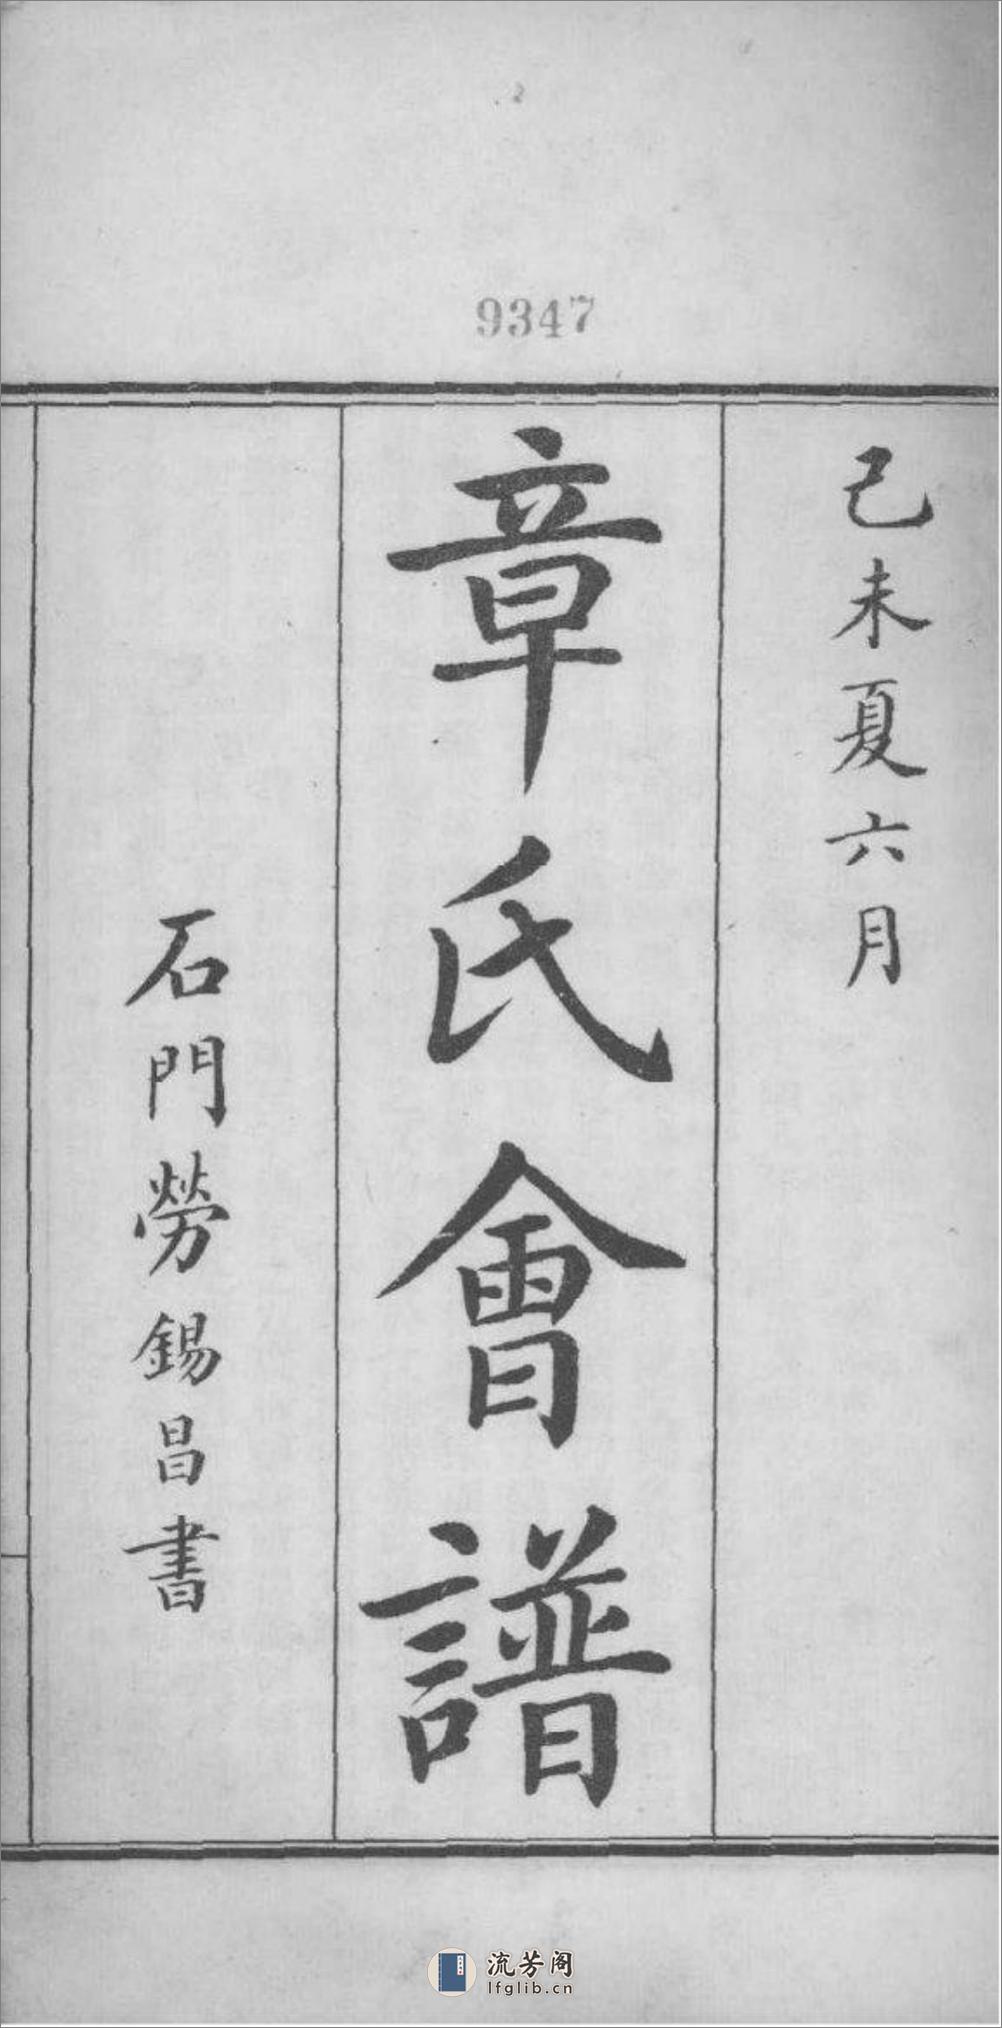 9347
己未夏六月
章氏會譜
石門勞錫昌書
流芳阁
lfglib.cn